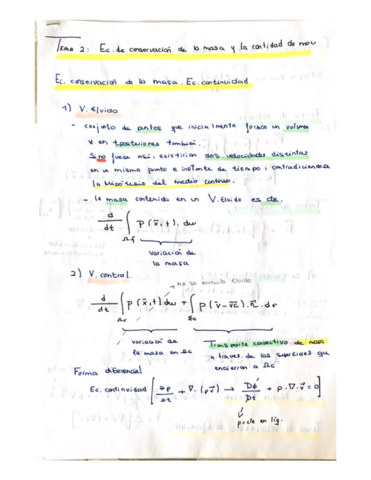 Tema 2: Ec. de conservación de la masa y la cantidad de mov
Ec. conservación de la masa. Ec. continuidad
1) V. fluido
- conjunto de puntos que inicialmente forman un volumen
V en t posteriores también.
Si no fuese así, existirían dos velocidades distintas
en un mismo punto e instante de tiempo, contradiciendo
la hipótesis del medio continuo.
- la masa contenida en un V. fluido es cte.
d/dt ∫Ωf ρ(x̄,t) dω
variación de
la masa
2) V. control
d/dt ∫Ωc ρ(x̄,t) dω + ∫Σc ρ(v̄-v̄c)·n̄·dσ
variación de
la masa en Ωc
Transporte convectivo de masa
a través de las superficies que
encierran a Ωc
Forma diferencial
Ec. continuidad [∂ρ/∂t + ∇·(ρv̄) → Dρ/Dt + ρ·∇·v̄ = 0]
ρ=cte en líq.